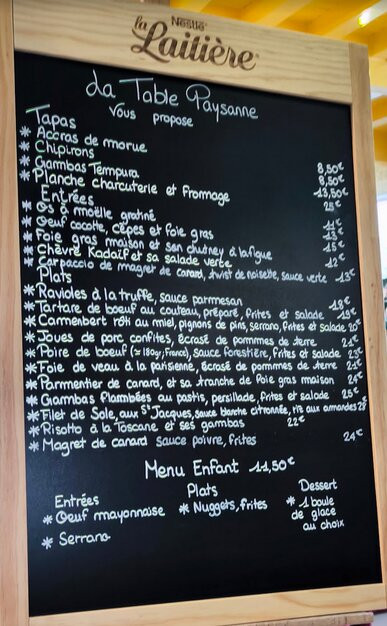 Nestlé
la Laitière
La Table Paysanne
Vous propose
Tapas
* Accras de morue 8,50€
* Chipirons 8,50€
* Gambas Tempura 13,50€
* Planche charcuterie et fromage 25€
Entrées
* Os à moëlle gratiné 11€
* Oeuf cocotte, cèpes et foie gras 13€
* Foie gras maison et son chutney à la figue 15€
* Chèvre Kadaïf et sa salade verte 12€
* Carpaccio de magret de canard, twist de noisette, sauce verte 13€
Plats
* Ravioles à la truffe, sauce parmesan 18€
* Tartare de boeuf au couteau, préparé, frites et salade 19€
* Camembert rôti au miel, pignons de pins, serrano, frites et salade 20€
* Joues de porc confites, écrasé de pommes de terre 21€
* Poire de boeuf (≈ 180gr, France), sauce forestière, frites et salade 23€
* Foie de veau à la parisienne, écrasé de pommes de terre 21€
* Parmentier de canard, et sa tranche de foie gras maison 24€
* Gambas Flambées au pastis, persillade, frites et salade 25€
* Filet de Sole, aux St Jacques, sauce blanche citronnée, riz aux amandes 28€
* Risotto à la Toscane et ses gambas 22€
* Magret de canard sauce poivre, frites 24€
Menu Enfant 11,50€
Entrées
* Oeuf mayonnaise
* Serrano
Plats
* Nuggets, frites
Dessert
* 1 boule
de glace
au choix